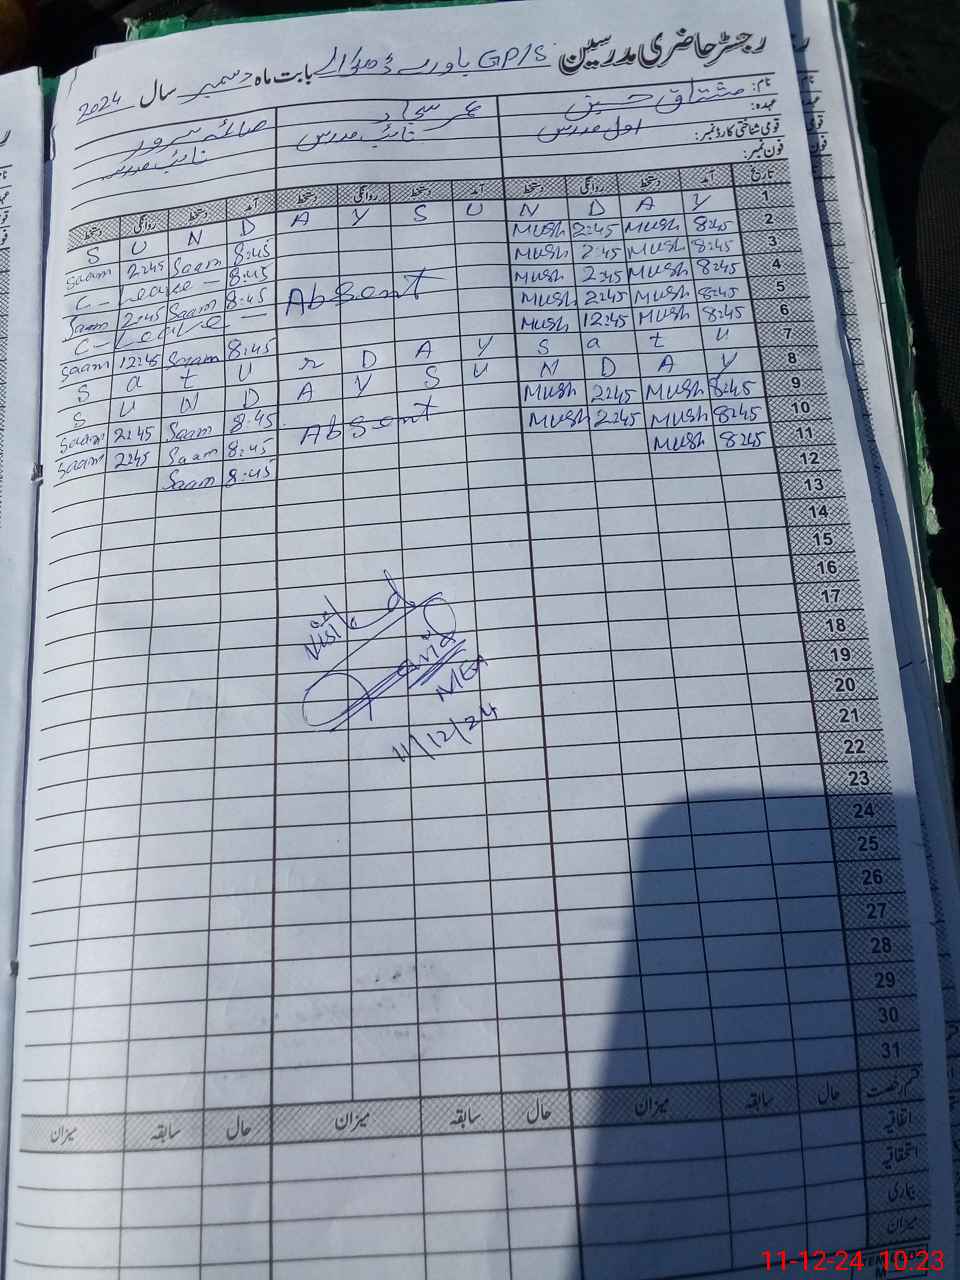 رجسٹر حاضری مدرسین GP/S باورے ڈھڈالے بابت ماہ دسمبر سال 2024
نام: مشتاق حسین عمر سجاد صائمہ سرور
عہدہ: اول مدرس نائب مدرس نائب مدرس
قومی شناختی کارڈ نمبر:
فون نمبر:
تاریخ آمد دستخط روانگی دستخط آمد دستخط روانگی دستخط آمد دستخط روانگی دستخط
1 S U N D A Y S U N D A Y
2 8:45 Mush 2:45 Mush 8:45 Saam 2:45 Saam
3 8:45 Mush 2:45 Mush 8:45 C-Leave-
4 8:45 Mush 2:45 Mush Absent 8:45 Saam 2:45 Saam
5 8:45 Mush 2:45 Mush C-Leave-
6 8:45 Mush 12:45 Mush 8:45 Saam 12:45 Saam
7 S a t u r D A Y S a t u
8 S U N D A Y S U N D A Y
9 8:45 Mush 2:45 Mush Absent 8:45 Saam 2:45 Saam
10 8:45 Mush 2:45 Mush 8:45 Saam 2:45 Saam
11 8:45 Mush 8:45 Saam
12
13
14
15
16
17
18
19
20
21
22
23
24
25
26
27
28
29
30
31
Visited
MEA
11/12/24
قسم رخصت حال سابقہ میزان حال سابقہ میزان حال سابقہ میزان
اتفاقیہ
استحقاقیہ
بیماری
میزان
11-12-24 10:23